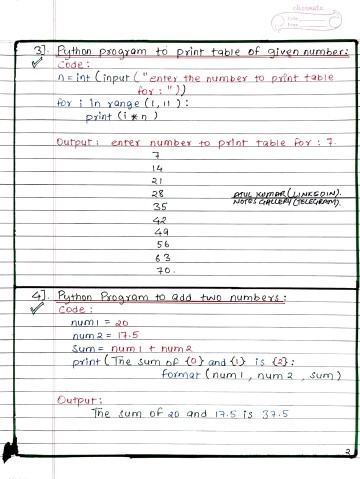 classmate
Date
Page
3]. Python program to print table of given number:
Code:
n=int (input ("enter the number to print table
for : "))
for i in range (1, 11) :
print (i * n)
Output: enter number to print table for : 7.
7
14
21
28
ATUL KUMAR (LINKEDIN).
NOTES GALLERY (TELEGRAM).
35
42
49
56
63
70.
4]. Python Program to add two numbers:
Code:
num1 = 20
num2 = 17.5
Sum = num1 + num2
print (The sum of {0} and {1} is {2}:
format (num1, num2, sum)
Output:
The sum of 20 and 17.5 is 37.5
2